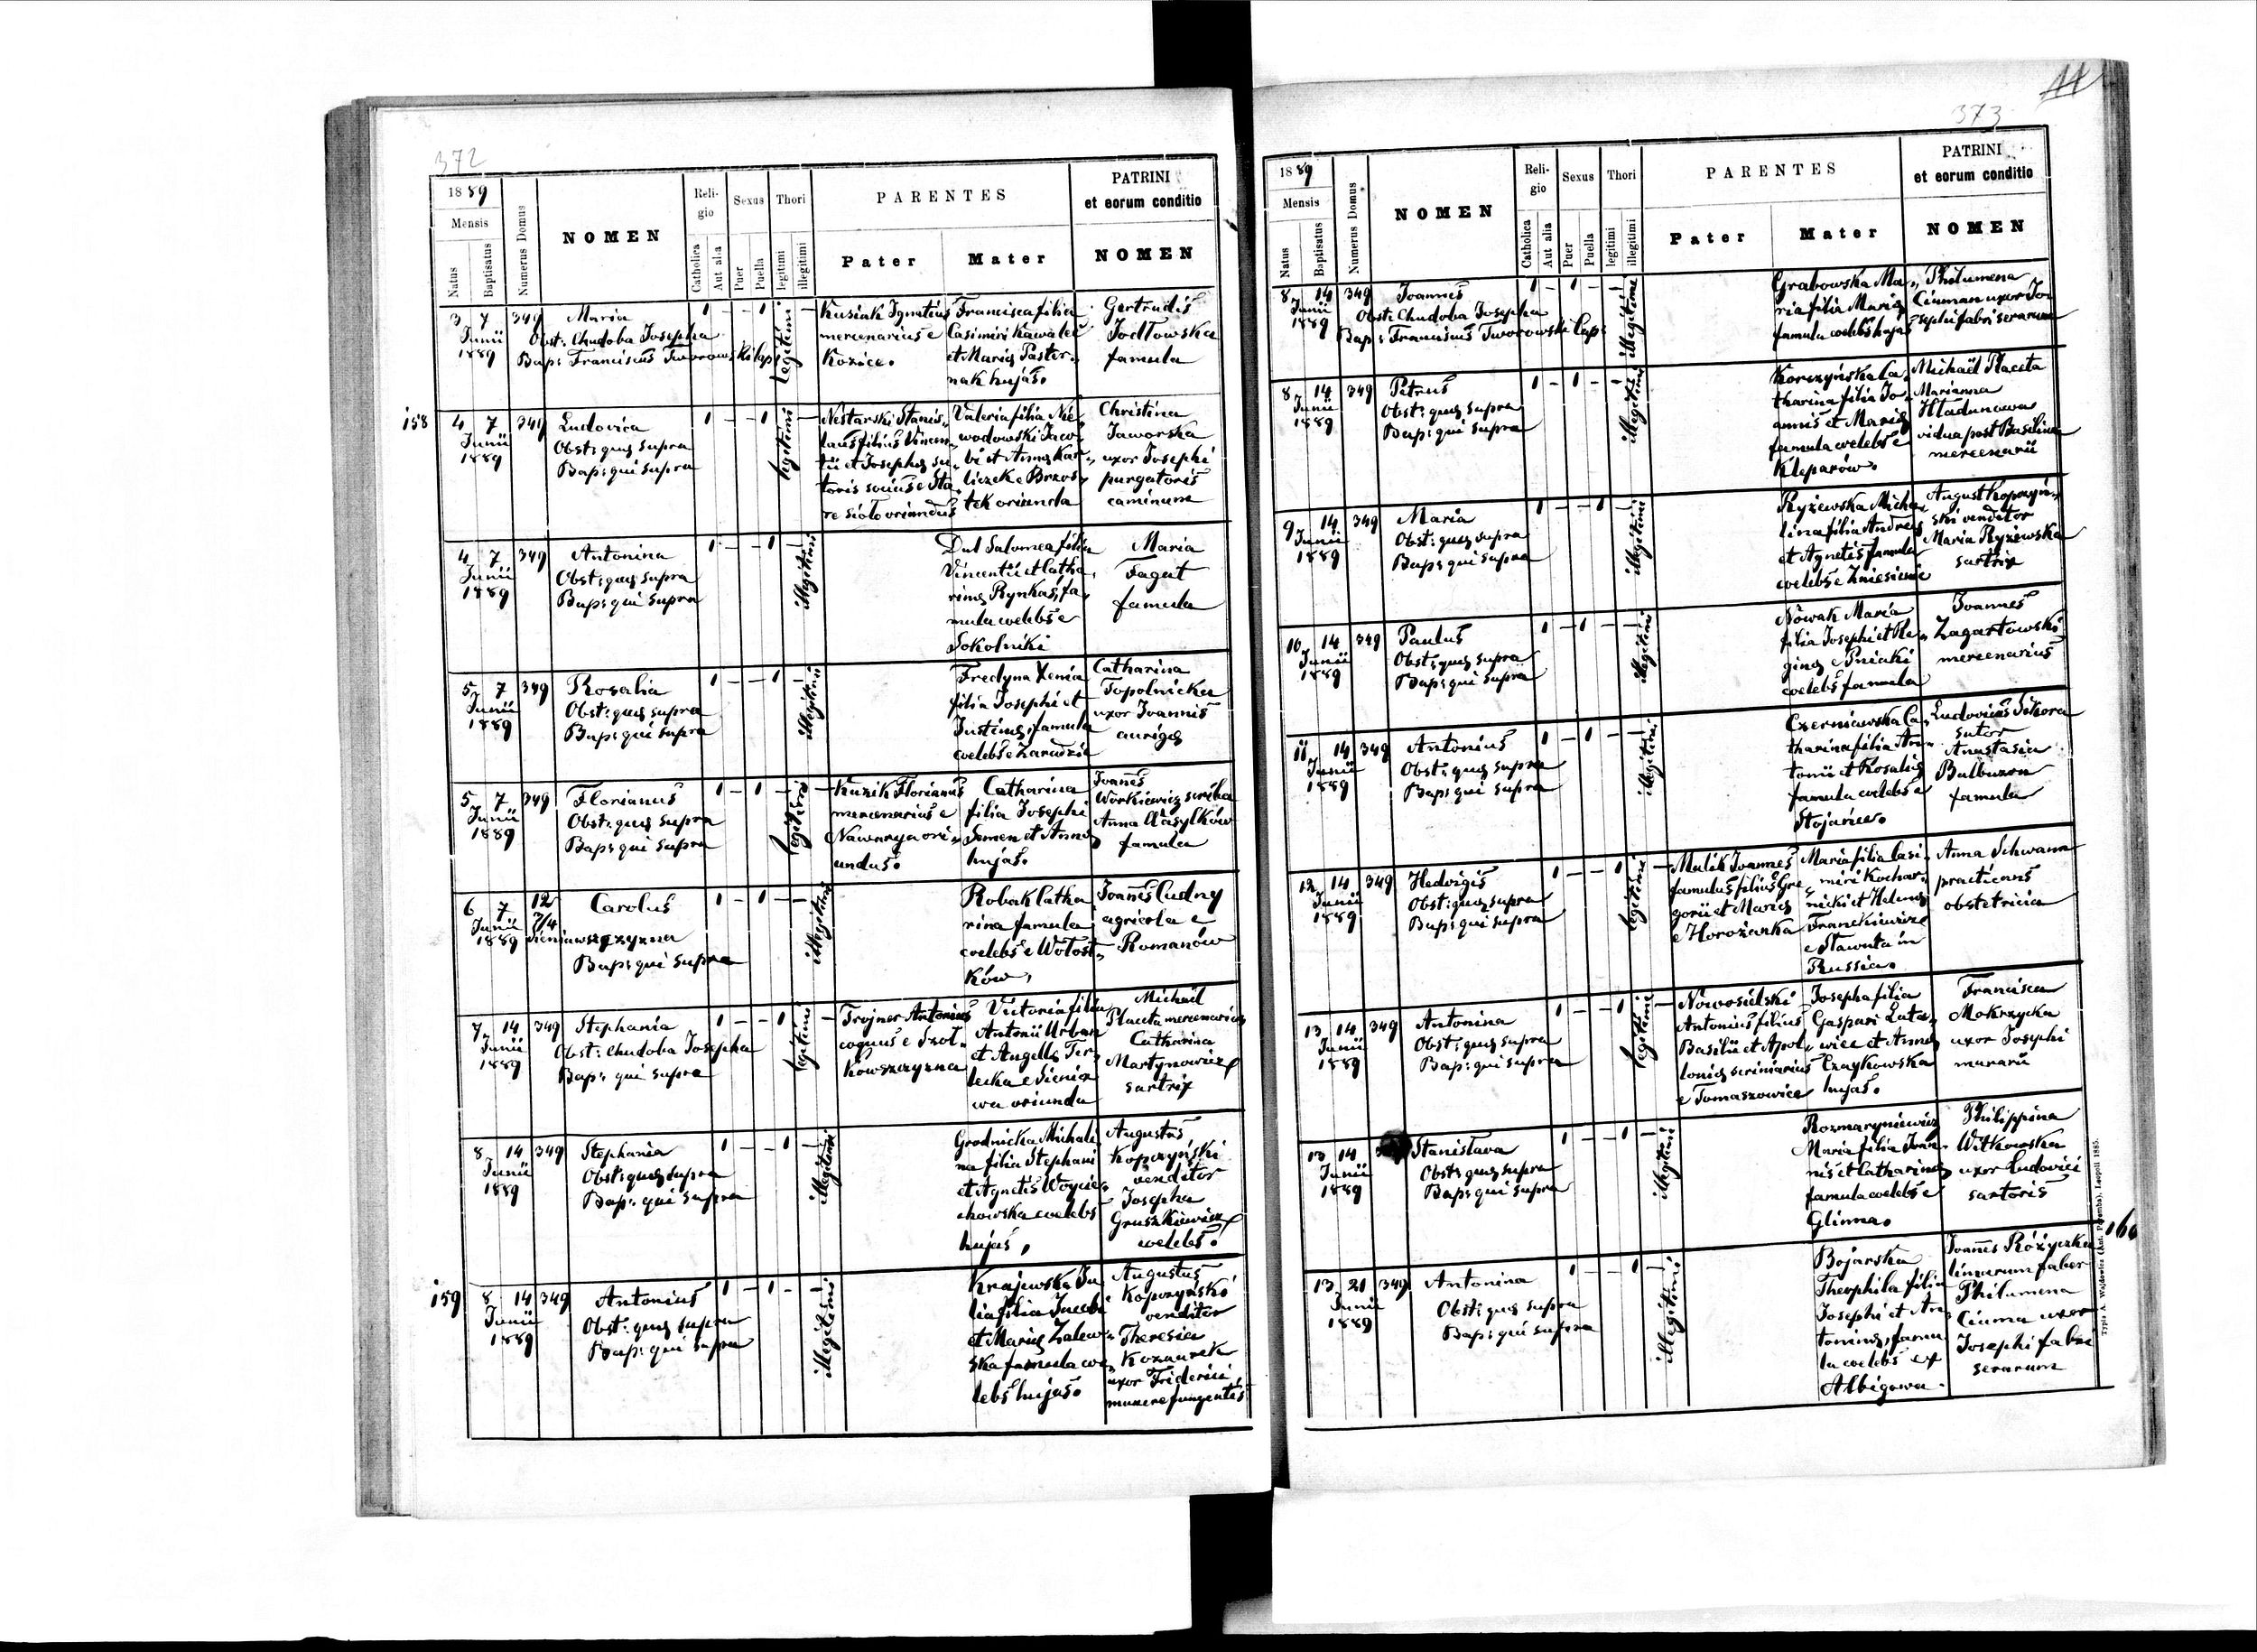 372
1889
Mensis
Natus
Baptisatus
Numerus Domus
NOMEN
Reli-
gio
Catholica
Aut alia
Sexus
Puer
Puella
Thori
legitimi
illegitimi
PARENTES
Pater
Mater
PATRINI
et eorum conditio
NOMEN
3 7 349
Junii
1889
Maria
Obst: Chudoba Josepha
Bap: Franciscus Tworowski Cap:
1 – – 1
legitimi
Kusiak Ignatius
mercenarius e
Kozice.
Francisca filia
Casimiri Kawalec
et Mariæ Paster„
nak hujas.
Gertrudis
Jodłowska
famula
158
4 7 349
Junii
1889
Ludovica
Obst: quæ supra
Bap: qui supra
1 – – 1
legitimi
Nestarski Stanis„
laus filius Vincen„
tii et Josephæ su„
toris socius e Sta„
re sioło oriundus
Valeria filia Nie„
wodowski Jaco„
bi et Annæ Kar„
liczek e Brzos„
tek oriunda
Christina
Jaworska
uxor Josephi
purgatoris
caminum
4 7 349
Junii
1889
Antonina
Obst: quæ supra
Bap: qui supra
1 – – 1 –
illegitimi
Dul Salomea filia
Vincentii et Catha„
rinæ Rynkas, fa„
mula coelebs e
Sokolniki
Maria
Fagut
famula
5 7 349
Junii
1889
Rosalia
Obst: quæ supra
Bap: qui supra
1 – – 1 –
illegitimi
Fredyna Xenia
filia Josephi et
Justinæ, famula
coelebs e Zarudzie
Catharina
Topolnicka
uxor Joannis
aurigæ
5 7 349
Junii
1889
Florianus
Obst: quæ supra
Bap: qui supra
1 – 1 –
legitimi
Kuzik Florianus
mercenarius e
Nawarya ori„
undus.
Catharina
filia Josephi
Semen et Annæ
hujas.
Joannes
Workiewicz scriba
Anna Wasylków
famula
6 7 12
Junii 7/4
1889 Sieniawszczyzna
Carolus
Bap: qui supra
1 – 1 – –
illegitimi
Robak Catha
rina famula
coelebs e Wołost„
ków,
Joannes Cudny
agricola e
Romanów
7 14 349
Junii
1889
Stephania
Obst: Chudoba Josepha
Bap: qui supra
1 – – 1
legitimi
Trojner Antonius
coquus e Szoł„
kowszczyzna
Victoria filia
Antonii Urban
et Angella Ter„
lecka e Sienia
wa oriunda
Michaël
Placeta mercenarius
Catharina
Martynowicz
sartrix
8 14 349
Junii
1889
Stephania
Obst: quæ supra
Bap: qui supra
1 – – 1 –
illegitimi
Grodnicka Michali
na filia Stephani
et Agnetis Woycie„
chowska coelebs
hujas,
Augustus
Kopczyński
venditor
Josepha
Gruszkiewicz
coelebs.
159
8 14 349
Junii
1889
Antonius
Obst: quæ supra
Bap: qui supra
1 – 1 –
illegitimi
Krajewska Ju
lia filia Jacobi
et Mariæ Zalew„
ska famula coe„
lebs hujas.
Augustus
Kopczyński
venditor
Theresia
Kozaurek
uxor Friderici
munere fungentis
373
1889
Mensis
Natus
Baptisatus
Numerus Domus
NOMEN
Reli-
gio
Catholica
Aut alia
Sexus
Puer
Puella
Thori
legitimi
illegitimi
PARENTES
Pater
Mater
PATRINI
et eorum conditio
NOMEN
8 14 349
Junii
1889
Joannes
Obst: Chudoba Josepha
Bap: Franciscus Tworowski Cap:
1 – 1 – –
illegitimi
Grabowska Ma„
ria filia Mariæ
famula coelebs hujas
Philumena
Ciuman uxor Jo„
sephi fabri serarum
8 14 349
Junii
1889
Petrus
Obst: quæ supra
Bap: qui supra
1 – 1 – –
illegitimi
Korczyńska Ca„
tharina filia Jo„
annis et Mariæ
famula coelebs e
Kleparów.
Michaël Placeta
Marianna
Hladunowa
vidua post Basilium
mercenarii
9 14 349
Junii
1889
Maria
Obst: quæ supra
Bap: qui supra
1 – – 1 –
illegitimi
Ryżewska Micha„
lina filia Andreæ
et Agnetis famula
coelebs e Zniesienie
August Kopczyń„
ski venditor
Maria Ryżewska
sartrix
10 14 349
Junii
1889
Paulus
Obst: quæ supra
Bap: qui supra
1 – 1 – –
illegitimi
Nowak Maria
filia Josephi et Re„
ginæ e Pniaki
coelebs famula
Joannes
Zagartowski
mercenarius
11 14 349
Junii
1889
Antonius
Obst: quæ supra
Bap: qui supra
1 – 1 – –
illegitimi
Czerniawska Ca„
tharina filia An„
tonii et Rosaliæ
famula coelebs e
Stojańce.
Ludovicus Sikora
sutor
Anastasia
Bulbuxon
famula
12 14 349
Junii
1889
Hedvigis
Obst: quæ supra
Bap: qui supra
1 – – 1
legitimi
Mulik Joannes
famulus filius Gre
gorii et Mariæ
e Horożanka
Maria filia Casi„
miri Kochar„
nicki et Helenæ
Franckiewicz
e Sławuta in
Russia.
Anna Schwann
practicans
obstetricia
13 14 349
Junii
1889
Antonina
Obst: quæ supra
Bap: qui supra
1 – – 1
legitimi
Nowosielski
Antonius filius
Basilii et Apol„
loniæ scriniarius
e Tomaszowice
Josepha filia
Gaspari Luta„
wiec et Annæ
Czaykowska
hujas.
Francisca
Mokrzycka
uxor Josephi
murarii
13 14
Junii
1889
Stanislava
Obst: quæ supra
Bap: qui supra
1 – – 1 –
illegitimi
Rozmaryniewicz
Maria filia Joan„
nis et Catharinæ
famula coelebs e
Glinna.
Philippina
Witkowska
uxor Ludovici
sartoris
160
13 21 349
Junii
1889
Antonina
Obst: quæ supra
Bap: qui supra
1 – – 1 –
illegitimi
Bojarska
Theophila filia
Josephi et An„
toninæ, famu
la coelebs ex
Albigowa.
Joannes Różyczka
limarum faber
Philumena
Ciuma uxor
Josephi fabri
serarum